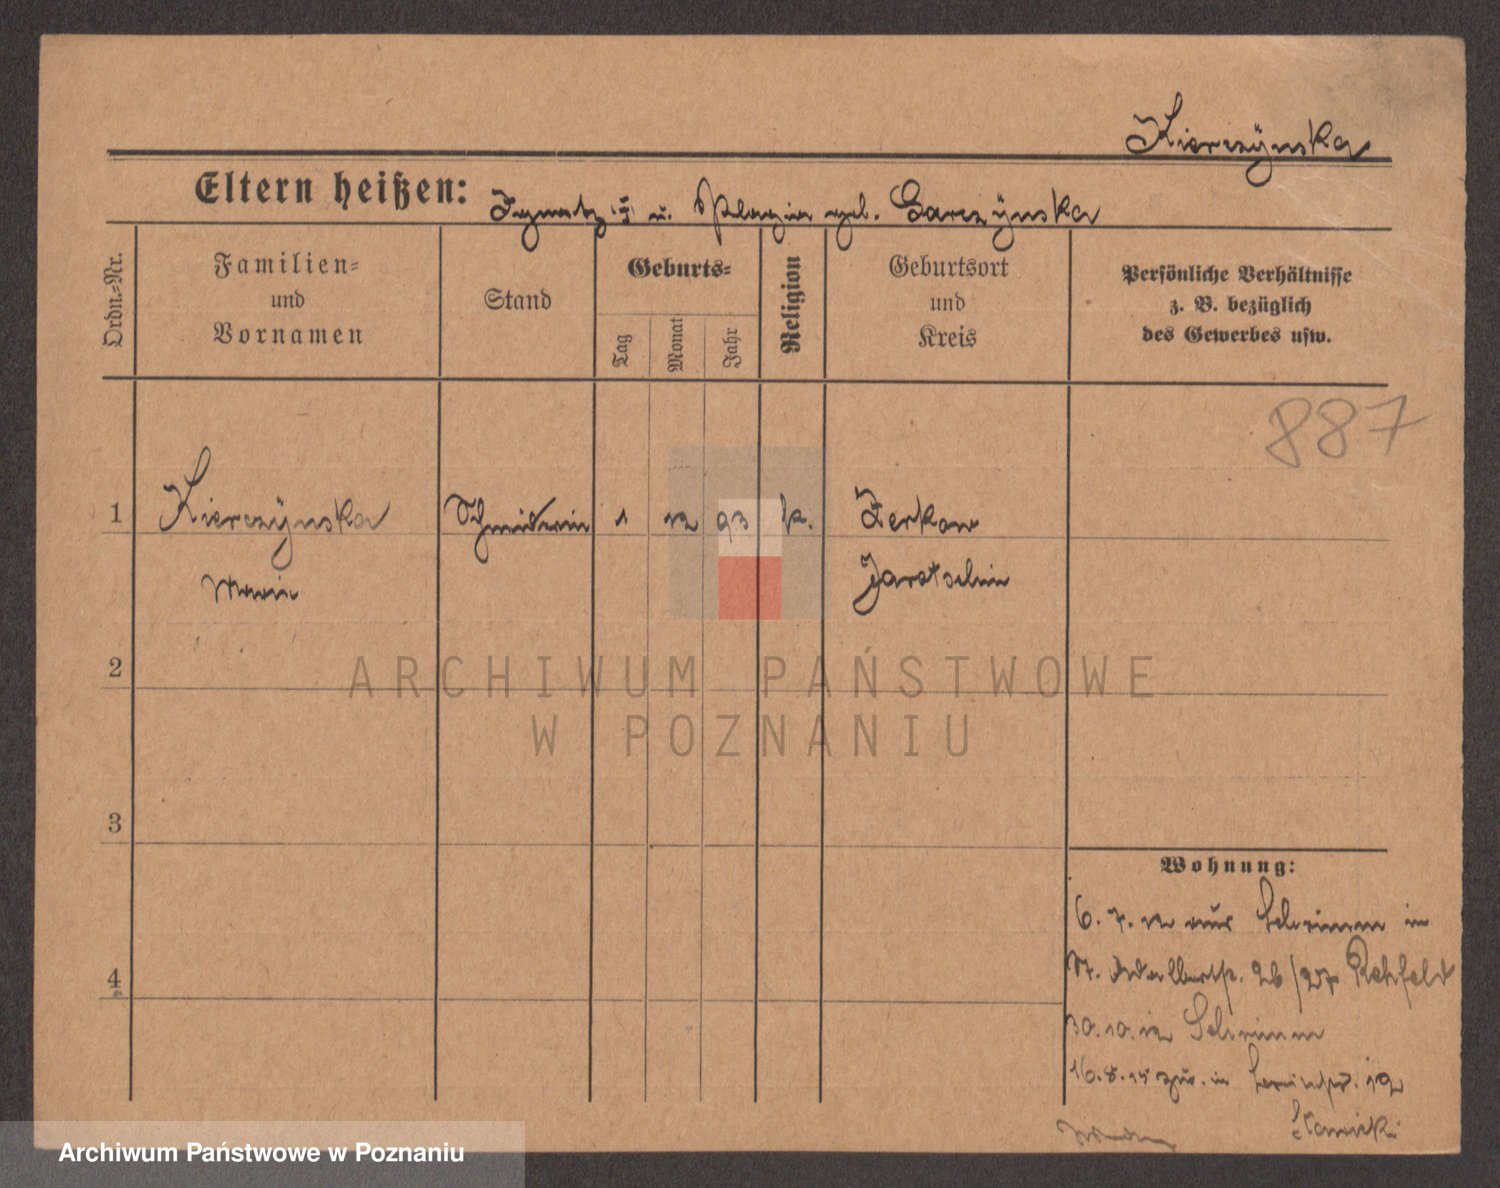 Kierczynska
Eltern heißen: Ignatz u. Pelagia geb. Garczynska
Ordn.-Nr.
Familien-
und
Vornamen
Stand
Geburts-
Tag
Monat
Jahr
Religion
Geburtsort
und
Kreis
Persönliche Verhältnisse
z. B. bezüglich
des Gewerbes usw.
887
1 Kierczynska Schneiderin 1 12 93 k. Zerkow
Maria Jarotschin
2
3
4
ARCHIWUM PAŃSTWOWE
W POZNANIU
Wohnung:
6. 7. 12 aus Schrimm in
St. Adalbertstr. 26/27 Rehfeld
30. 10. 12 Schrimm
16. 8. 15 zur. in 12
Archiwum Państwowe w Poznaniu